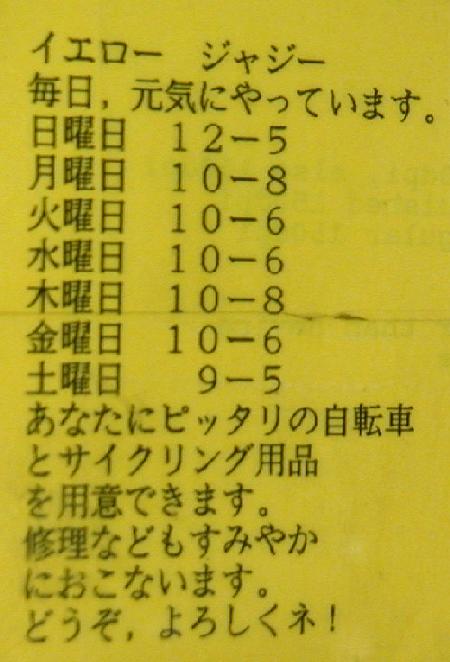 イエロー　ジャジー
毎日，元気にやっています。
日曜日　１２－５
月曜日　１０－８
火曜日　１０－６
水曜日　１０－６
木曜日　１０－８
金曜日　１０－６
土曜日　　９－５
あなたにピッタリの自転車
とサイクリング用品
を用意できます。
修理などもすみやか
におこないます。
どうぞ，よろしくネ！